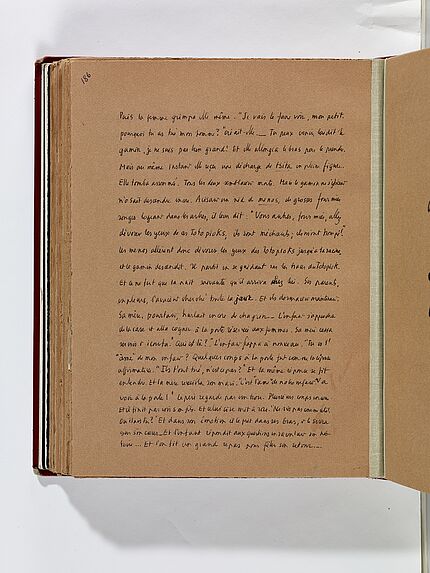 186
Puis la femme grimpa elle même. "Je vais te faire voir, mon petit,
pourquoi tu as tué mon homme?" criait-elle. — Tu peux venir, lui dit le
gamin, je ne suis pas loin grand! Et elle allongea le bras pour le prendre.
Mais au même instant elle reçu une décharge de en pleine figure.
Elle tomba assommé. Tous les deux étaient morts. Mais le gamin ne
n'osait descendre encore. Avisant un nid de menos, de grosses fourmis
rouges logeant dans les arbres, il leur dit: "Vous autres, fourmis, allez
dévorer les yeux de ces Totopioks, ils sont méchants; ils m'ont trompé!"
les menos allèrent donc dévorer les yeux des Totopioks jusqu'à la racine,
et le gamin descendit. Il partit en se guidant sur les traces du Totopiok.
Et ce ne fut que la nuit suivante qu'il arriva chez lui. Ses parents,
en pleurs, l'avaient cherché toute la jour. Et ils dormaient maintenant.
Sa mère, pourtant, hurlait encore de chagrin. — L'enfant s'approcha
de la case et alla cogner à la porte réservée aux femmes. Sa mère cessa
soudain et écouta. "Qui est là?" L'enfant frappa à nouveau. "Tu es l'
"âme" de mon enfant? Quelques coups à la porte fut comme la réponse
affirmative. "Ils t'ont tué, n'est-ce pas?" Et la même réponse se fit
entendre. Et la mère réveilla son mari. "C'est l'âme de notre enfant! Va
voir à la porte!" Le père regarda par un trou. Plusieurs coups encore
Et il finit par voir son fils. Et celui-ci se mit à rire. "Ne vois-tu pas
?" Et dans son émotion il le prit dans ses bras, et le serra
sur son cœur. Et l'enfant répondit aux questions en racontant son his-
toire... Et l'on fit un grand repas pour fêter son retour...